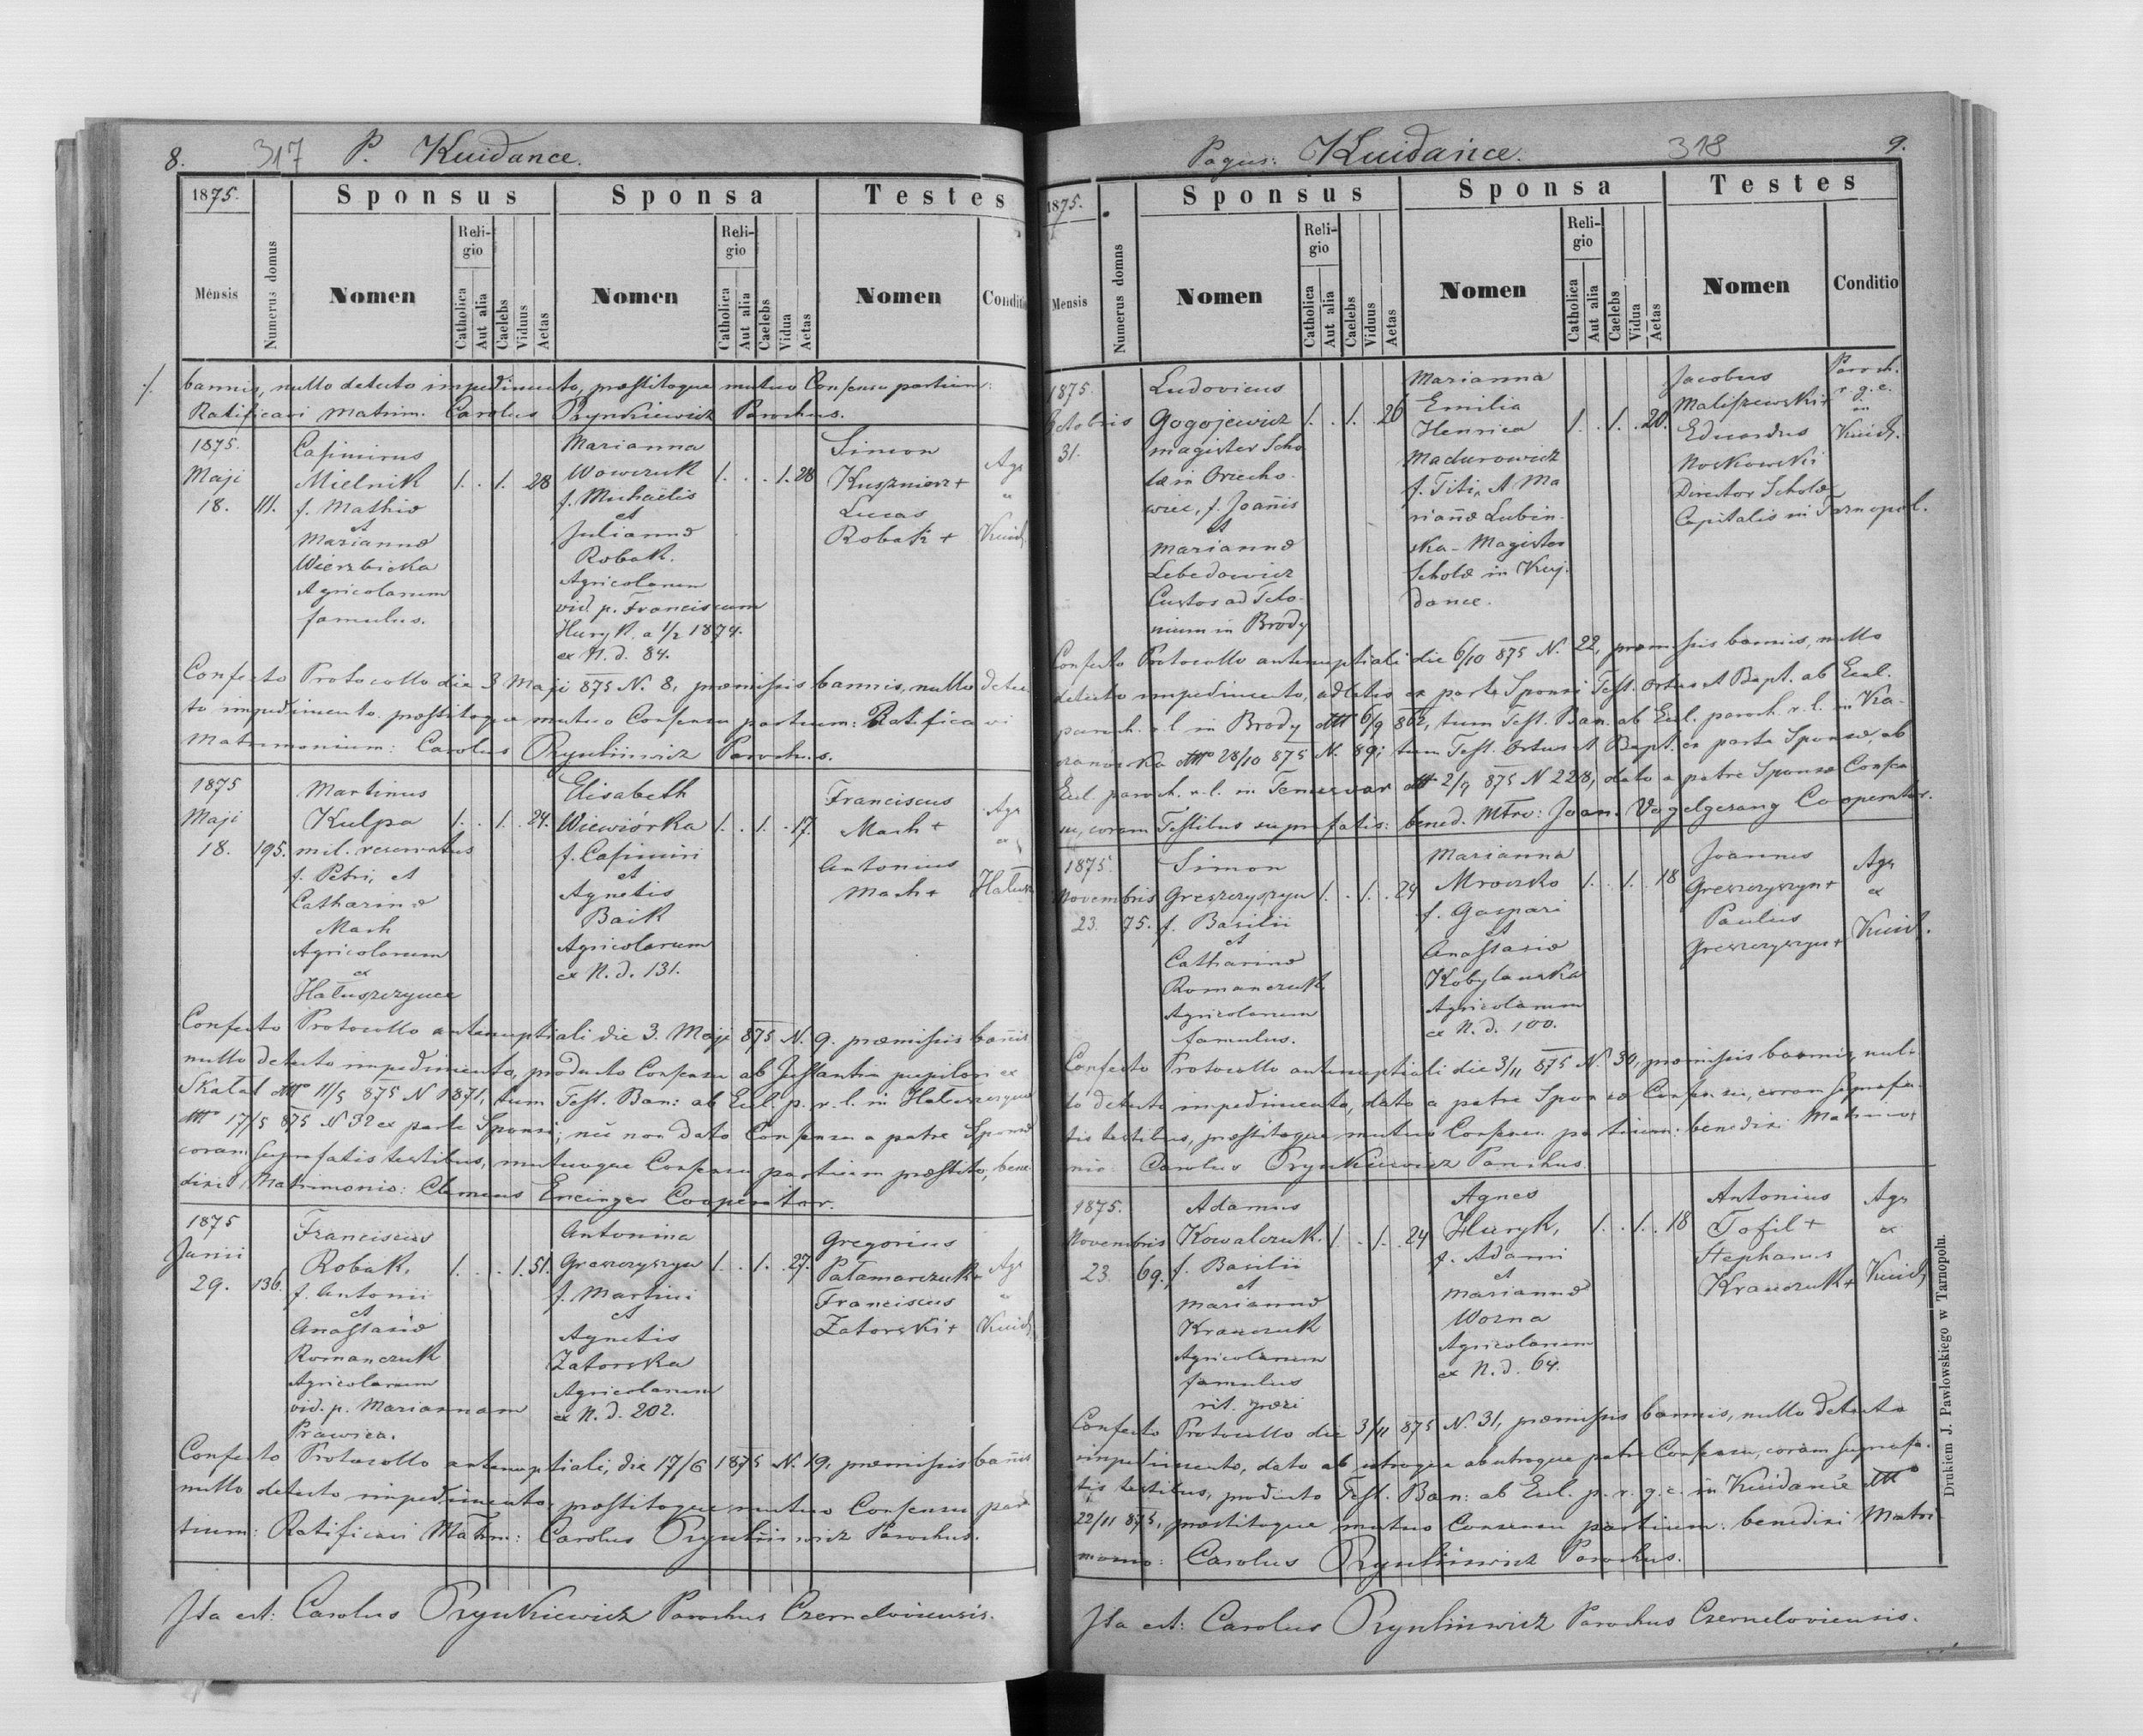 8. 317 P. Kuidance.
1875. Sponsus Sponsa Testes
Mensis Numerus domus Nomen Religio Catholica Aut alia Caelebs Viduus Aetas Nomen Religio Catholica Aut alia Caelebs Vidua Aetas Nomen Conditio
./. bannis, nullo detecto impedimento, præstitoque mutuo Consensu partium:
Ratificavi Matrim. Carolus Prynkiewicz Parochus.
1875.
Maji
18. 111.
Casimirus
Mielnik 1. . 1. 28
f. Mathiæ
et
Mariannæ
Wierzbicka
Agricolarum
famulus.
Marianna
Wowczuk 1. . . 1. 28
f. Michaëlis
et
Juliannæ
Robak.
Agricolarum
vid. p. Franciscum
Huryk. a 1/2 1874.
ex N. d. 84.
Simon
Kuszniorz +
Lucas
Robak +
Agr
ex
Kuid.
Confecto Protocollo die 3 Maji 875 N. 8, præmissis bannis, nullo detec
to impedimento præstitoque mutuo Consensu partium: Ratificavi
Matrimonium: Carolus Prynkiewicz Parochus.
1875
Maji
18. 195.
Martinus
Kulpa 1. . 1. . 24.
mil. reservatus
f. Petri, et
Catharinæ
Mach
Agricolarum
ex
Hałuszczynce
Elisabeth
Wiewiórka 1. . 1. . 17.
f. Casimiri
et
Agnetis
Baik
Agricolarum
ex N. d. 131.
Franciscus
Mach +
Antonius
Mach +
Agr
ex
Hałusz
Confecto Protocollo antenuptiali die 3. Maji 875 N. 9. præmissis bañis
nullo detecto impedimento, producto Consensu ab Instantia pupilari ex
Skałat dtto 11/5 875 N 1871, tum Test. Ban: ab Eul. p. r. l. in Hałuszczynce
dtto 17/5 875 N 32 ex parte Sponsi; nec non dato Consensu a patre Sponsæ
coram suprafatis testibus, mutuoque Consensu partium præstito, bene
dixi Matrimonio: Clemens Encinger Cooperator.
1875
Junii
29. 136.
Franciscus
Robak, 1. . . 1. 51.
f. Antonii
et
Anastasiæ
Romanczuk
Agricolarum
vid. p. Mariannam
Prawica.
Antonina
Greszczyszyn 1. . 1. . 27.
f. Martini
et
Agnetis
Zatorska
Agricolarum
ex N. d. 202.
Gregorius
Pałamarczuk +
Franciscus
Zatorski +
Agr
ex
Kuid
Confecto Protocollo antenuptiali, die 17/6 1875 N. 19. præmissis bañis
nullo detecto impedimento præstitoque mutuo Consensu par
tium: Ratificavi Matrm: Carolus Prynkiewicz Parochus.
Ita est: Carolus Prynkiewicz Parochus Czerneloviensis.
Pagus: Kuidance. 318 9.
1875. Sponsus Sponsa Testes
Mensis Numerus domus Nomen Religio Catholica Aut alia Caelebs Viduus Aetas Nomen Religio Catholica Aut alia Caelebs Vidua Aetas Nomen Conditio
1875.
Octobris
31.
Ludovicus
Gogojewicz 1. . 1. . 26
magister Scho
læ in Orzecho
wiec, f. Joañis
et
Mariannæ
Lebedowicz
Custos ad Telo
nium in Brody
Marianna
Emilia
Henrica 1. . 1. . 20.
Madurowicz
f. Titi, et Ma
riañæ Lubin
ska - Magistra
Scholæ in Kuj
dance.
Jacobus
Maliszewski +
Eduardus
Noskowski
Director Scholæ
Capitalis in Tarnopol.
Paroch.
r. g. c.
in
Kuid.
Confecto Protocollo antenuptiali die 6/10 875 N. 22, præmissis bannis, nullo
detecto impedimento, adlatis ex parte Sponsi Test. Ortus et Bapt. ab Eul.
paroch. r. l. in Brody dtto 6/9 862, tum Test. Ban. ab Eul. paroch. r. l. in Ka-
dtto 28/10 875 N. 89; tum Test. Ortus et Bapt. ex parte Sponsæ, ab
Eul. paroch. r. l. in Temesvar dtto 2/9 875 N 228, dato a patre Sponsæ Consen
su, coram Testibus suprafatis: bened. Mtro: Joan. Vogelgesang Cooperator.
1875.
Novembris
23. 75.
Simon
Greszczyszyn 1. . 1. . 24
f. Basilii
et
Catharinæ
Romanczuk
Agricolarum
famulus.
Marianna
Mroczko 1. . 1. . 18
f. Gaspari
et
Anastasiæ
Kobylanska
Agricolarum
ex N. d. 100.
Joannes
Greszczyszyn +
Paulus
Greszczyszyn +
Agr
ex
Kuid.
Confecto Protocollo antenuptiali die 3/11 875 N. 30, præmissis bannis, nul-
lo detecto impedimento, dato a patre Sponsæ Consensu, coram suprafa
tis testibus, præstitoque mutuo Consensu partium: benedixi Matrimo
nio: Carolus Prynkiewicz Parochus.
1875.
Novembris
23. 69.
Adamus
Kowalczuk. 1. . 1. . 24
f. Basilii
et
Mariannæ
Krawczuk
Agricolarum
famulus
rit. græci
Agnes
Huryk, 1. . 1. . 18
f. Adami
et
Mariannæ
Worna
Agricolarum
ex N. d. 64.
Antonius
Tofil +
Stephanus
Krawczuk +
Agr
ex
Kuid
Confecto Protocollo die 3/11 875 N. 31, præmissis bannis, nullo detecto
impedimento, dato ab utroque ab utroque patre Consensu, coram suprafa
tis testibus, producto Test. Ban: ab Eul. p. r. g. c. in Kuidance dtto
22/11 875, præstitoque mutuo Consensu partium: benedixi Matri
monio: Carolus Prynkiewicz Parochus.
Ita est: Carolus Prynkiewicz Parochus Czerneloviensis.
Drukiem J. Pawłowskiego w Tarnopolu.